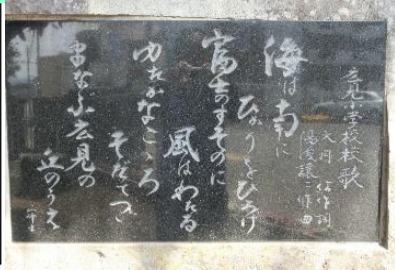 広見小学校校歌
大岡 信 作詞
湯浅譲二 作曲
海は南に
ひかりをひろげ
富士のすそのに
風はわたる
ゆたかなこころ
そだてつつ
まなぶ広見の
丘のうえ